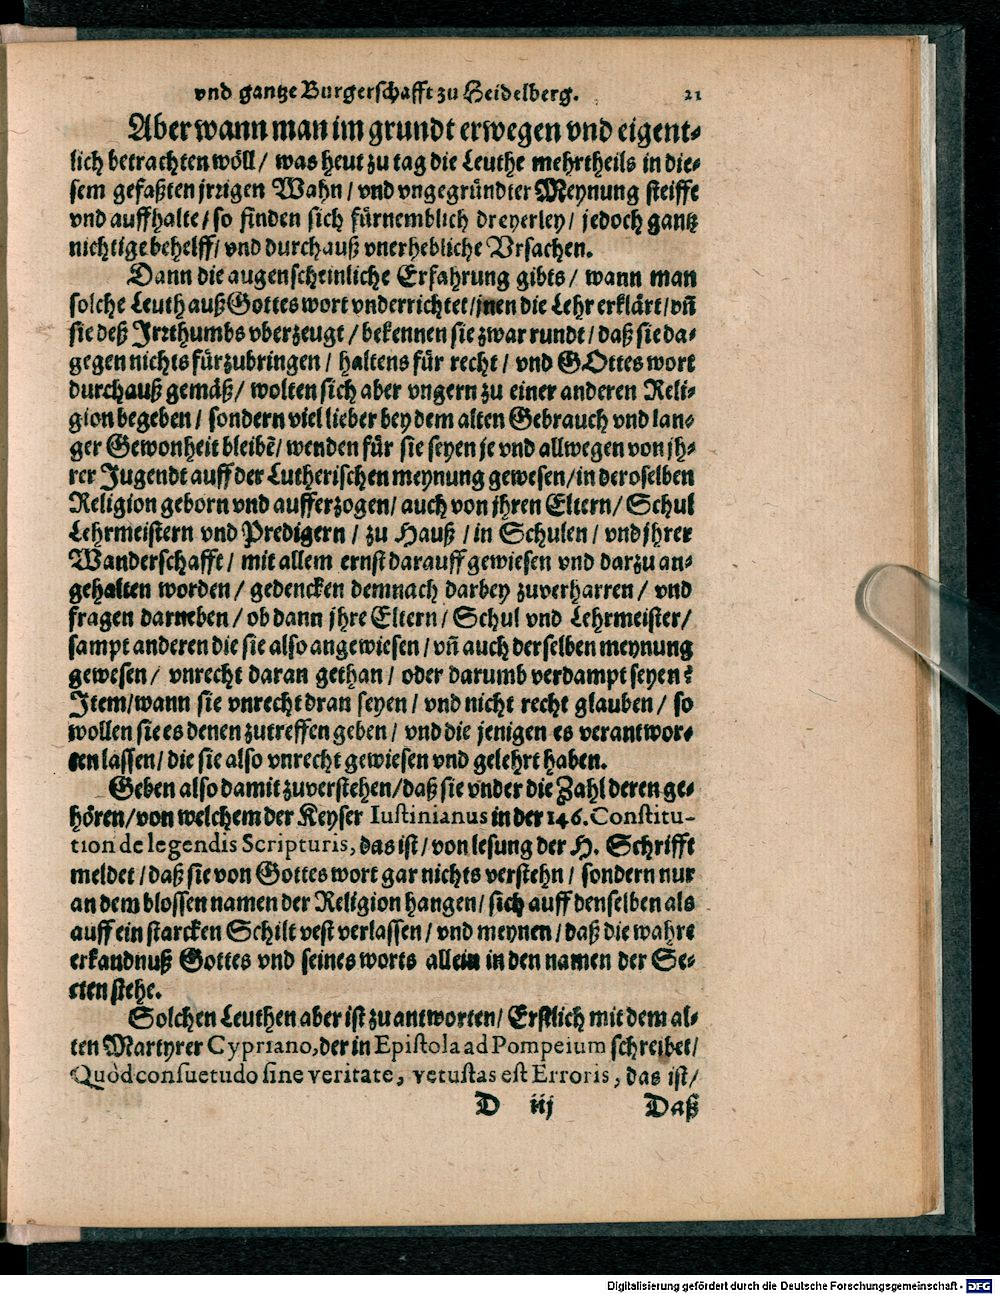 vnd gantze Burgerschafft zu Heidelberg. 21
Aber wann man im grundt erwegen vnd eigent-
lich betrachten wöll / was heut zu tag die Leuthe mehrtheils in die-
sem gefaßten jrrigen Wahn / vnd vngegründter Meynung steiffe
vnd auffhalte / so finden sich fürnemblich dreyerley / jedoch gantz
nichtige behelff / vnd durchauß vnerhebliche Vrsachen.
Dann die augenscheinliche Erfahrung gibts / wann man
solche Leuth auß Gottes wort vnderrichtet / jnen die Lehr erklärt / vñ
sie deß Irrthumbs vberzeugt / bekennen sie zwar rundt / daß sie da-
gegen nichts fürzubringen / haltens für recht / vnd GOttes wort
durchauß gemäß / wolten sich aber vngern zu einer anderen Reli-
gion begeben / sondern viel lieber bey dem alten Gebrauch vnd lan-
ger Gewonheit bleibẽ / wenden für sie seyen je vnd allwegen von jh-
rer Jugendt auff der Lutherischen meynung gewesen / in deroselben
Religion geborn vnd aufferzogen / auch von jhren Eltern / Schul
Lehrmeistern vnd Predigern / zu Hauß / in Schulen / vnd jhrer
Wanderschafft / mit allem ernst darauff gewiesen vnd darzu an-
gehalten worden / gedencken demnach darbey zuverharren / vnd
fragen darneben / ob dann jhre Eltern / Schul vnd Lehrmeister /
sampt anderen die sie also angewiesen / vñ auch derselben meynung
gewesen / vnrecht daran gethan / oder darumb verdampt seyen?
Item / wann sie vnrecht dran seyen / vnd nicht recht glauben / so
wollen sie es denen zutreffen geben / vnd die jenigen es verantwor-
ten lassen / die sie also vnrecht gewiesen vnd gelehrt haben.
Geben also damit zuverstehen / daß sie vnder die Zahl deren ge-
hören / von welchem der Keyser Iustinianus in der 146. Constitu-
tion de legendis Scripturis, das ist / von lesung der H. Schrifft
meldet / daß sie von Gottes wort gar nichts verstehn / sondern nur
an dem blossen namen der Religion hangen / sich auff denselben als
auff ein starcken Schilt vest verlassen / vnd meynen / daß die wahre
erkandnuß Gottes vnd seines worts allein in den namen der Se-
cten stehe.
Solchen Leuthen aber ist zu antworten / Erstlich mit dem al-
ten Martyrer Cypriano, der in Epistola ad Pompeium schreibet /
Quòd consuetudo sine veritate, vetustas est Erroris, das ist /
D iij Daß
Digitalisierung gefördert durch die Deutsche Forschungsgemeinschaft - DFG